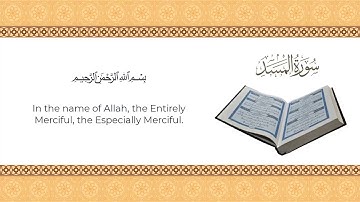 بِسْمِ ٱللَّهِ ٱلرَّحْمَٰنِ ٱلرَّحِيمِ
سورة المسد
In the name of Allah, the Entirely
Merciful, the Especially Merciful.